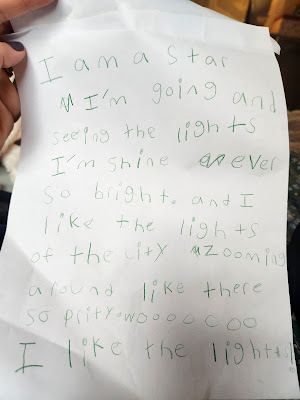 I am a star
I'm going and
seeing the lights
I'm shine ever
so bright. and I
like the lights
of the city zooming
around like there
so prity. wooooooo
I like the lights